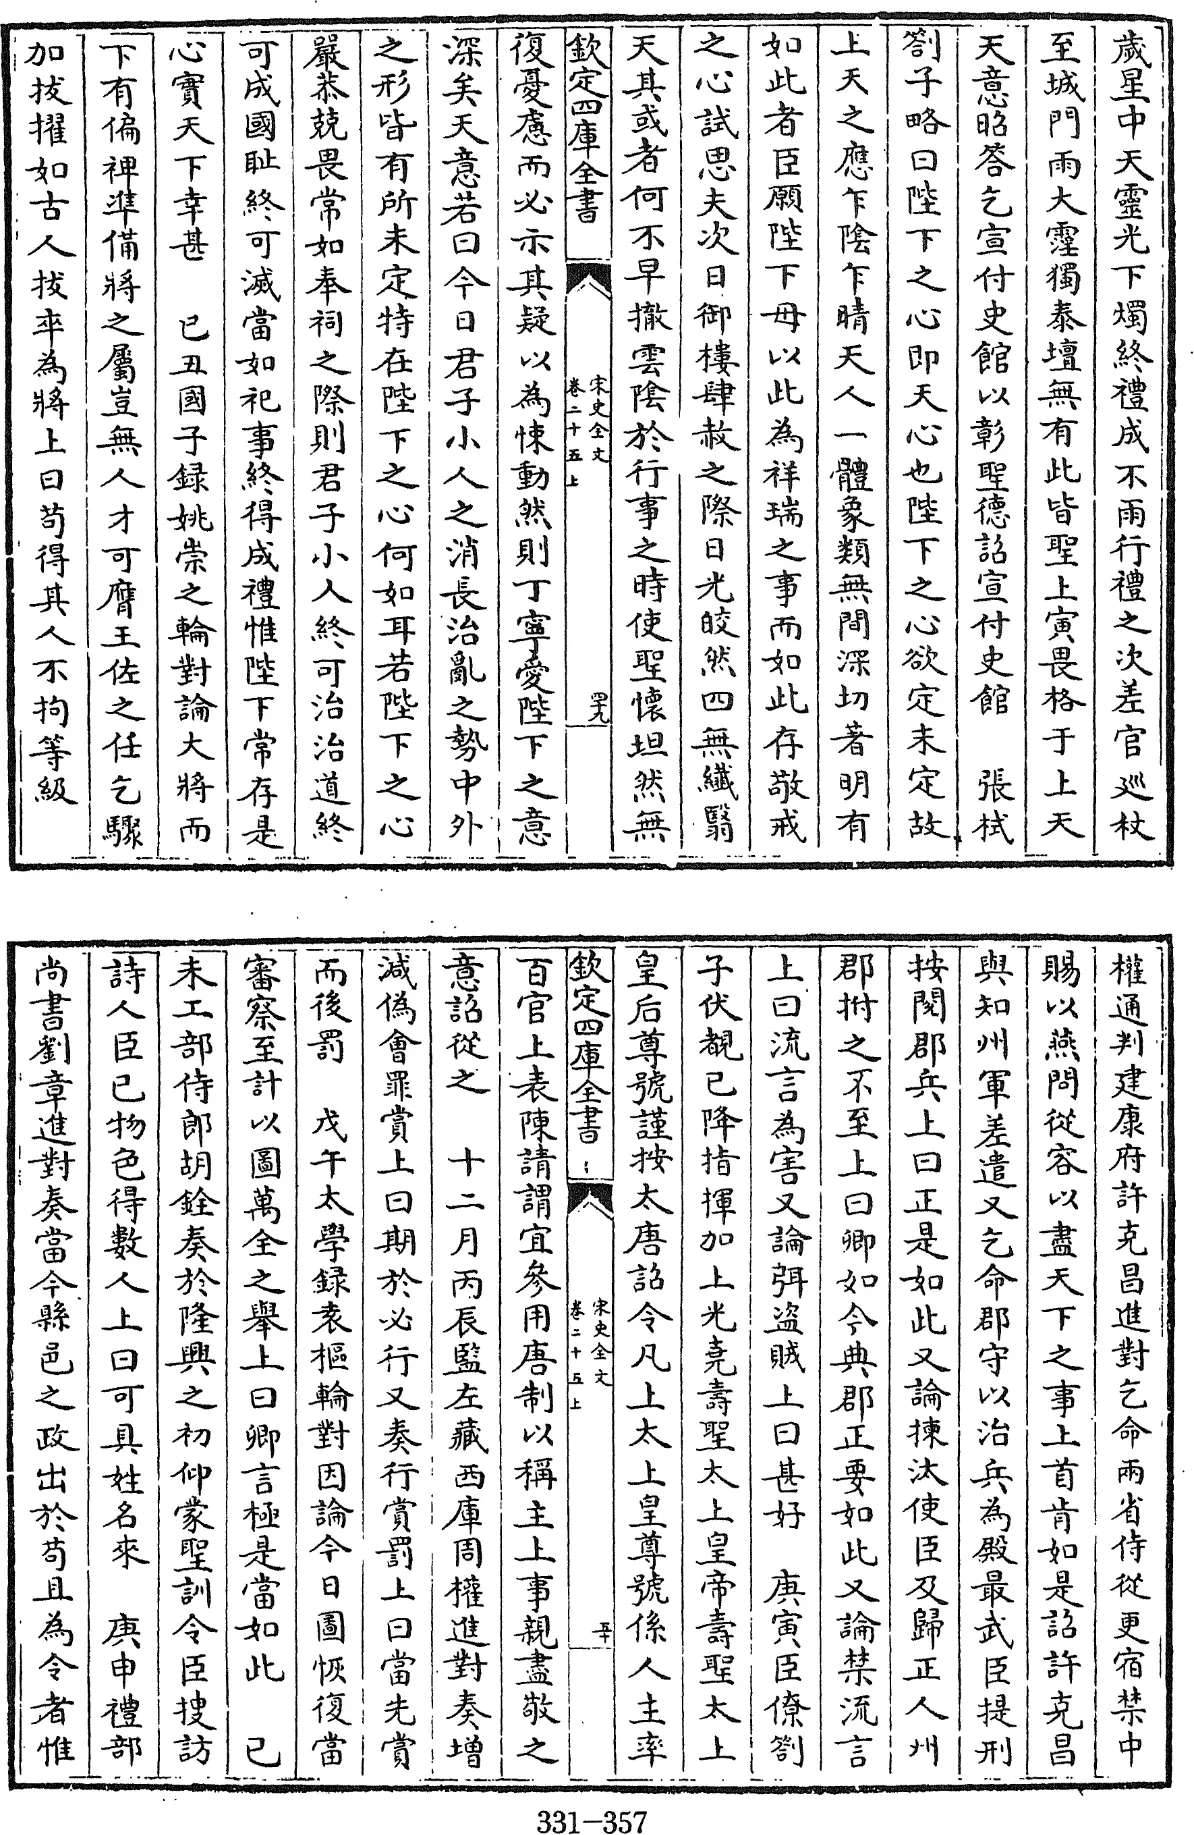 歲星中天靈光下燭終禮成不雨行禮之次差官巡杖
至城門雨大霪獨泰壇無有此皆聖上寅畏格于上天
天意昭答乞宣付史館以彰聖德詔宣付史館　張栻
劄子略曰陛下之心即天心也陛下之心欲定未定故
上天之應乍陰乍晴天人一體象類無間深切著明有
如此者臣願陛下毋以此為祥瑞之事而如此存敬戒
之心試思夫次日御樓肆赦之際日光皎然四無纖翳
天其或者何不早撤雲陰於行事之時使聖懷坦然無
欽定四庫全書　宋史全文卷二十五上　四十九
復憂慮而必示其疑以為悚動然則丁寧愛陛下之意
深矣天意若曰今日君子小人之消長治亂之勢中外
之形皆有所未定特在陛下之心何如耳若陛下之心
嚴恭兢畏常如奉祠之際則君子小人終可治治道終
可成國耻終可滅當如祀事終得成禮惟陛下常存是
心實天下幸甚　已丑國子録姚崇之輪對論大將而
下有偏裨準備將之屬豈無人才可膺王佐之任乞驟
加拔擢如古人拔卒為將上曰苟得其人不拘等級
權通判建康府許克昌進對乞命兩省侍從更宿禁中
賜以燕問從容以盡天下之事上首肯如是詔許克昌
與知州軍差遣又乞命郡守以治兵為殿最武臣提刑
按閱郡兵上曰正是如此又論揀汰使臣及歸正人州
郡拊之不至上曰卿如今典郡正要如此又論禁流言
上曰流言為害又論弭盜賊上曰甚好　庚寅臣僚劄
子伏覩已降指揮加上光堯壽聖太上皇帝壽聖太上
皇后尊號謹按太唐詔令凡上太上皇尊號係人主率
欽定四庫全書　宋史全文卷二十五上　五十
百官上表陳請謂宜參用唐制以稱主上事親盡敬之
意詔從之　十二月丙辰監左藏西庫周權進對奏增
減偽會罪賞上曰期於必行又奏行賞罰上曰當先賞
而後罰　戊午太學録袁樞輪對因論今日圖恢復當
審察至計以圖萬全之舉上曰卿言極是當如此　已
未工部侍郎胡銓奏於隆興之初仰蒙聖訓令臣搜訪
詩人臣已物色得數人上曰可具姓名來　庚申禮部
尚書劉章進對奏當今縣邑之政出於苟且為令者惟
331-357